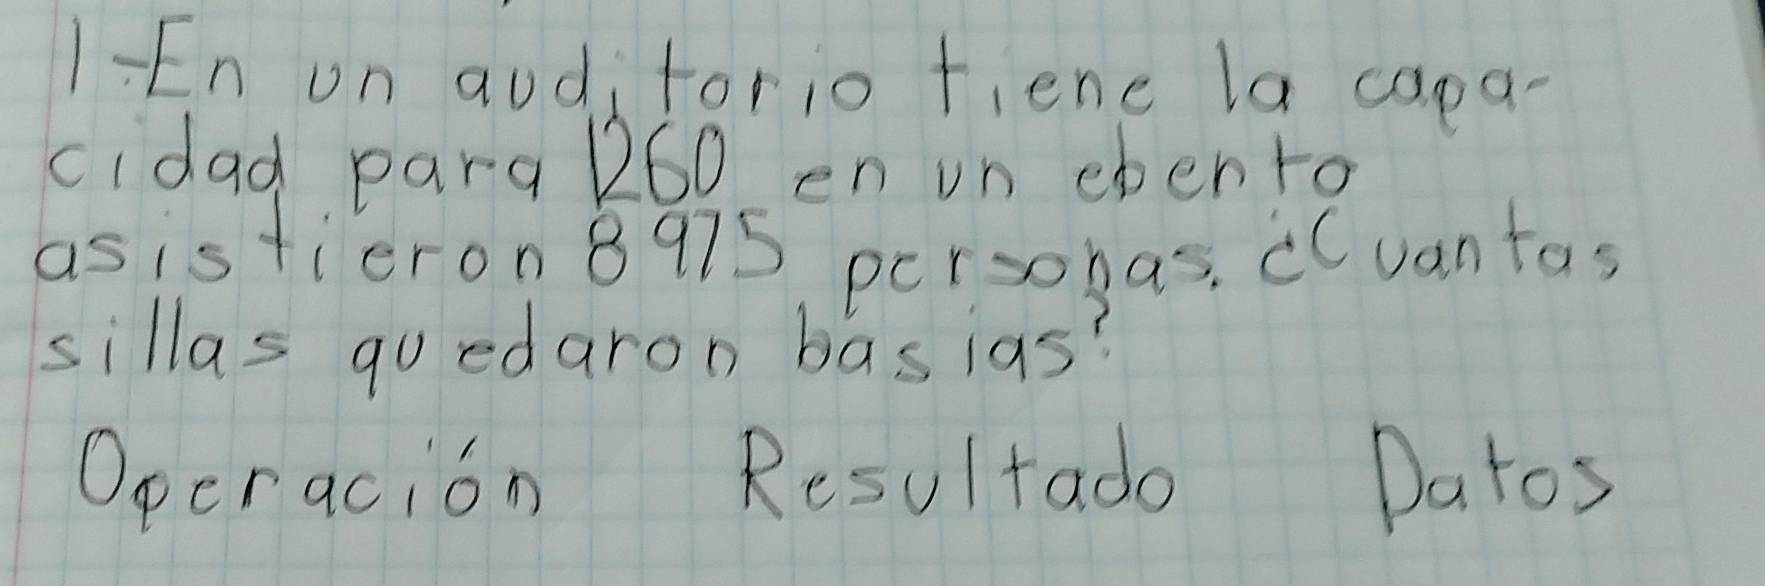 1-En un auditorio tiene la capa-
cidad para 1260 en un ebento
asistieron 8975 personas. ¿Cuantas
sillas quedaron basias?
Operación Resultado Datos